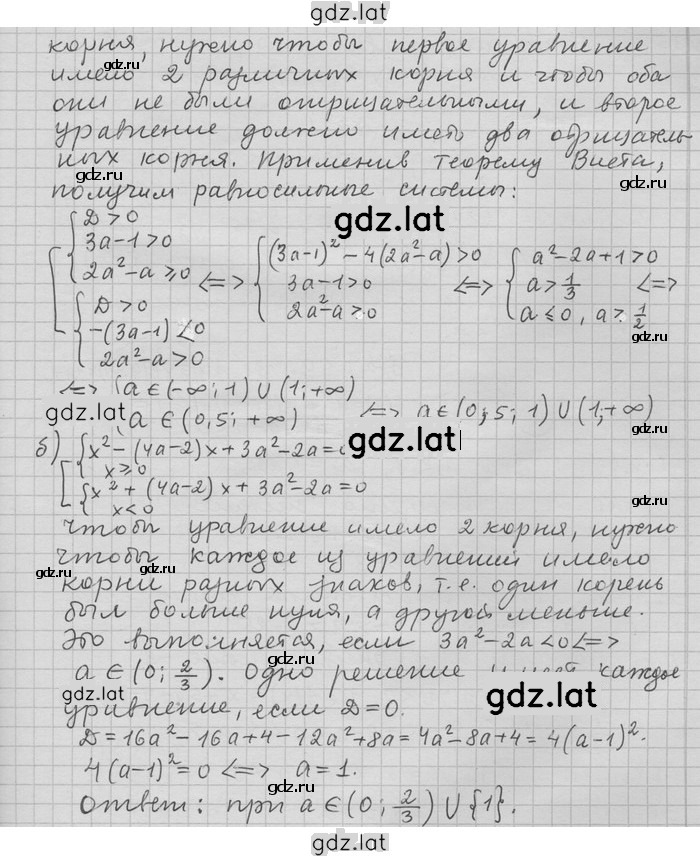 gdz.lat
корня, нужно чтобы первое уравнение
имело 2 различных корня и чтобы оба
они не были отрицательными, и второе
уравнение должно иметь два отрицатель-
ных корня. Применив теорему Виета,
получим равносильные системы:
[ { D > 0 ; 3a-1 > 0 ; 2a²-a ⩾ 0 { D > 0 ; -(3a-1) < 0 ; 2a²-a > 0
<=> { (3a-1)² - 4(2a²-a) > 0 ; 3a-1 > 0 ; 2a²-a > 0
<=> { a²-2a+1 > 0 ; a > 1/3 ; a ⩽ 0, a > 1/2 <=>
<=> { a ∈ (-∞; 1) ∪ (1; +∞) ; a ∈ (0,5; +∞) <=> a ∈ (0,5; 1) ∪ (1; +∞)
б) [ { x² - (4a-2)x + 3a² - 2a =
x ⩾ 0
{ x² + (4a-2)x + 3a² - 2a = 0
x < 0
Чтобы уравнение имело 2 корня, нужно
чтобы каждое из уравнений имело
корни разных знаков, т.е. один корень
был больше нуля, а другой меньше.
Это выполняется, если 3a² - 2a < 0 <=>
a ∈ (0; 2/3). Одно решение каждое
уравнение, если D = 0.
D = 16a² - 16a + 4 - 12a² + 8a = 4a² - 8a + 4 = 4(a-1)².
4(a-1)² = 0 <=> a = 1.
Ответ: при a ∈ (0; 2/3) ∪ {1}.
gdz.lat